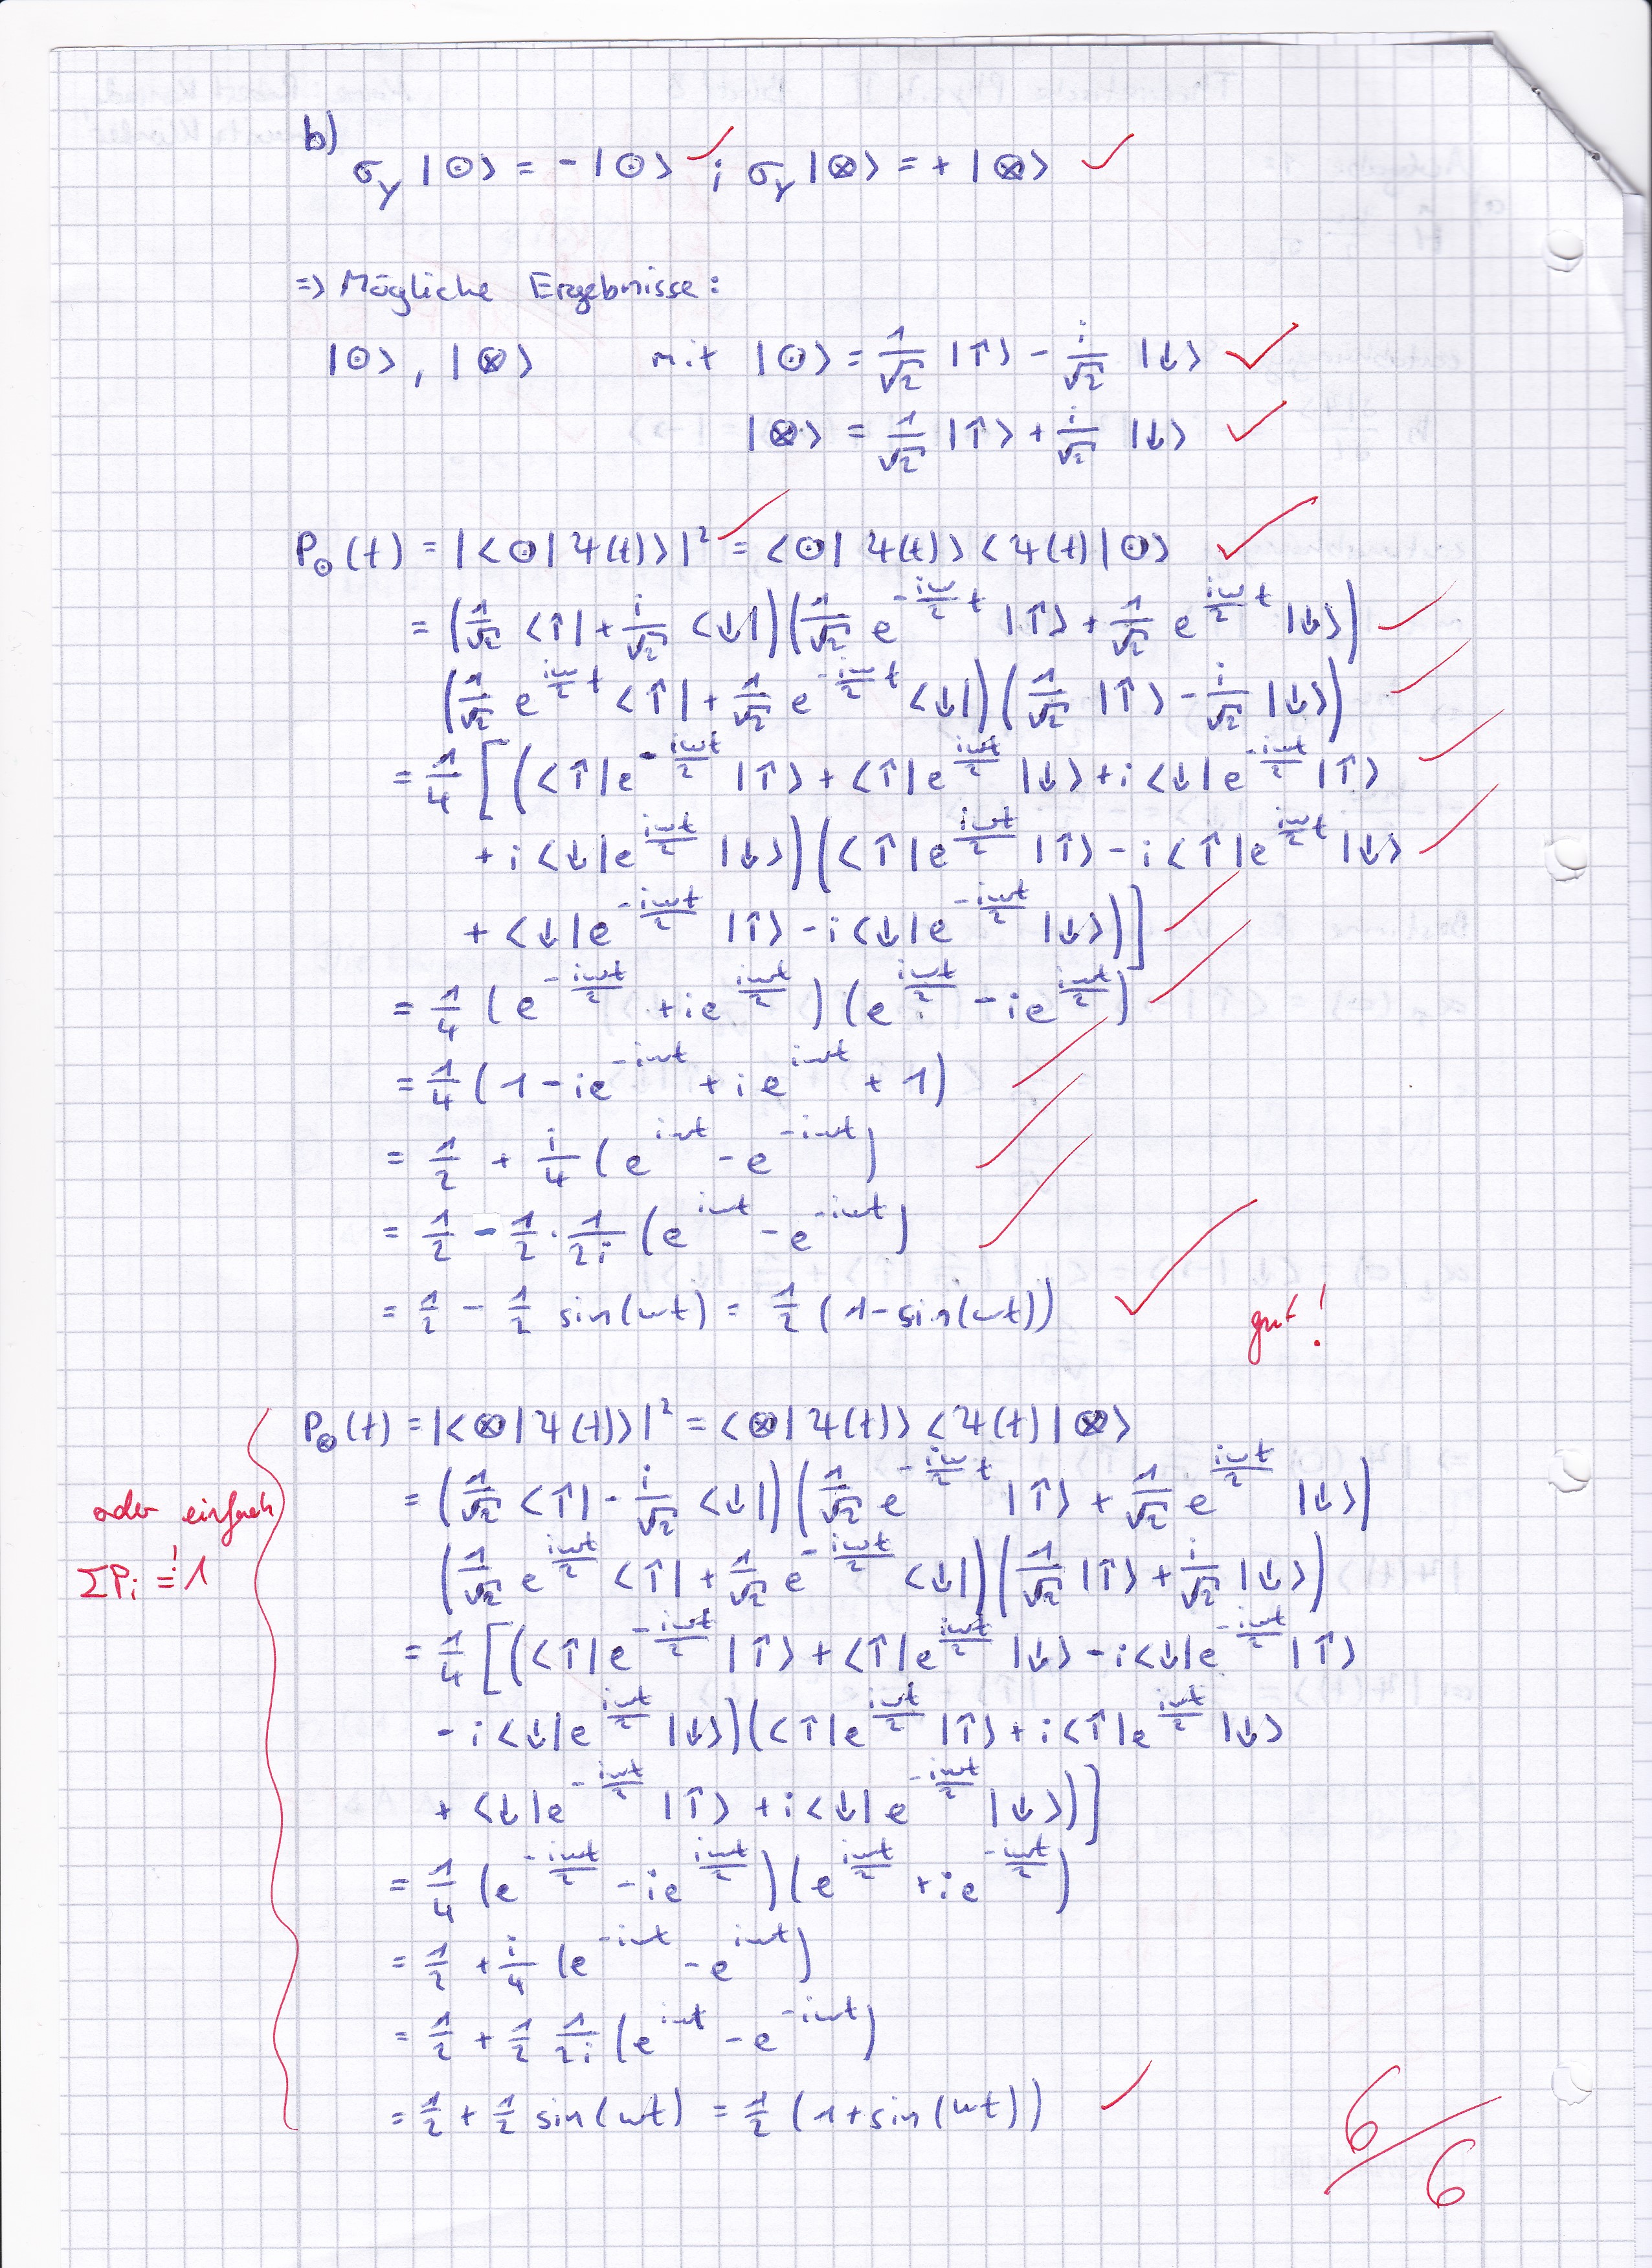 b)
σ_y |⊙⟩ = -|⊙⟩ ✓ ; σ_y |⊗⟩ = + |⊗⟩ ✓
=> Mögliche Ergebnisse:
|⊙⟩, |⊗⟩ mit |⊙⟩ = 1/√2 |↑⟩ - i/√2 |↓⟩ ✓
|⊗⟩ = 1/√2 |↑⟩ + i/√2 |↓⟩ ✓
P_⊙(t) = |⟨⊙|Ψ(t)⟩|² ✓ = ⟨⊙|Ψ(t)⟩⟨Ψ(t)|⊙⟩ ✓
= (1/√2 ⟨↑| + i/√2 ⟨↓|)(1/√2 e^{-iω/2 t} |↑⟩ + 1/√2 e^{iω/2 t} |↓⟩) ✓
(1/√2 e^{iω/2 t} ⟨↑| + 1/√2 e^{-iω/2 t} ⟨↓|)(1/√2 |↑⟩ - i/√2 |↓⟩) ✓
= 1/4 [(⟨↑|e^{-iωt/2} |↑⟩ + ⟨↑|e^{iωt/2} |↓⟩ + i⟨↓|e^{-iωt/2} |↑⟩ ✓
+ i⟨↓|e^{iωt/2} |↓⟩)(⟨↑|e^{iωt/2} |↑⟩ - i⟨↑|e^{iω/2 t} |↓⟩ ✓
+ ⟨↓|e^{-iωt/2} |↑⟩ - i⟨↓|e^{-iωt/2} |↓⟩)] ✓
= 1/4 (e^{-iωt/2} + ie^{iωt/2})(e^{iωt/2} - ie^{iωt/2}) ✓
= 1/4 (1 - ie^{-iωt} + ie^{iωt} + 1) ✓
= 1/2 + i/4 (e^{iωt} - e^{-iωt}) ✓
= 1/2 - 1/2 · 1/2i (e^{iωt} - e^{-iωt}) ✓
= 1/2 - 1/2 sin(ωt) = 1/2 (1-sin(ωt)) ✓ gut!
P_⊗(t) = |⟨⊗|Ψ(t)⟩|² = ⟨⊗|Ψ(t)⟩⟨Ψ(t)|⊗⟩
= (1/√2 ⟨↑| - i/√2 ⟨↓|)(1/√2 e^{-iω/2 t} |↑⟩ + 1/√2 e^{iωt/2} |↓⟩)
oder einfach
(1/√2 e^{iωt/2} ⟨↑| + 1/√2 e^{-iωt/2} ⟨↓|)(1/√2 |↑⟩ + i/√2 |↓⟩)
ΣP_i =! 1
= 1/4 [(⟨↑|e^{-iωt/2} |↑⟩ + ⟨↑|e^{iωt/2} |↓⟩ - i⟨↓|e^{-iωt/2} |↑⟩
- i⟨↓|e^{iωt/2} |↓⟩)(⟨↑|e^{iωt/2} |↑⟩ + i⟨↑|e^{iωt/2} |↓⟩
+ ⟨↓|e^{-iωt/2} |↑⟩ + i⟨↓|e^{-iωt/2} |↓⟩)]
= 1/4 (e^{-iωt/2} - ie^{iωt/2})(e^{iωt/2} + ie^{-iωt/2})
= 1/2 + i/4 (e^{-iωt} - e^{iωt})
= 1/2 + 1/2 1/2i (e^{iωt} - e^{-iωt})
= 1/2 + 1/2 sin(ωt) = 1/2 (1+sin(ωt)) ✓
6/6